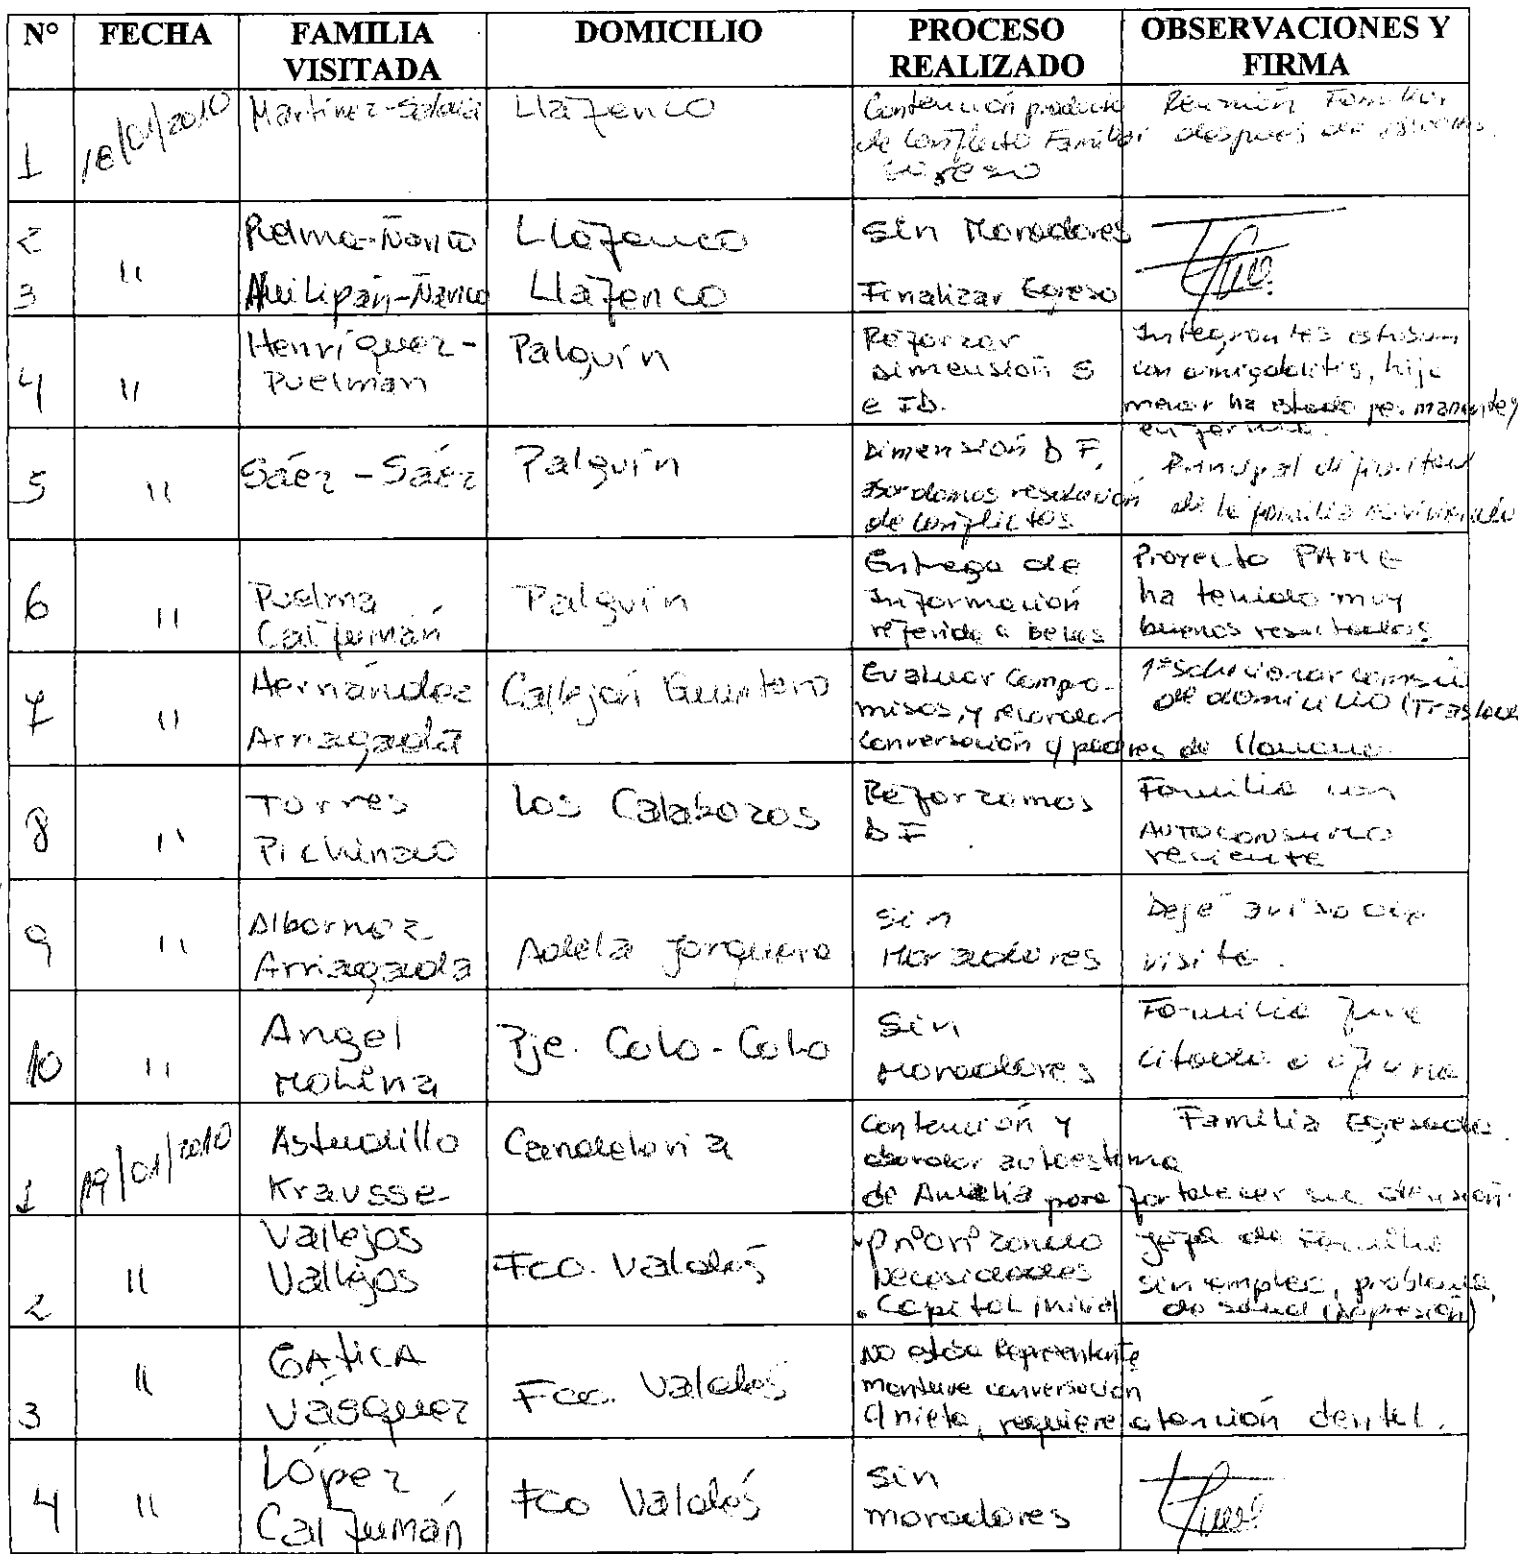 N° FECHA FAMILIA VISITADA DOMICILIO PROCESO REALIZADO OBSERVACIONES Y FIRMA
1 18/01/2010 Martinez- Llafenco Contención producto de conflicto Familiar Reunión Familiar después de
2 " Llafenco Sin Moradores
3 Huilipán-Ñanco Llafenco Finalizar Egreso
4 " Henríquez-Puelman Palguín Reforzar dimensión S e ID. Integrantes con amigdalitis, hijo menor ha estado
5 " Sáez-Sáez Palguín Dimensión D F, abordamos resolución de conflictos Principal de la familia
6 " Puelma Calfumán Palguín Entrega de Información referida a Becas Proyecto PAME ha tenido muy buenos resultados
7 " Hernández Arriagada Callejón Quintero Evaluar Compromisos, y recordar conversación y 1° Solucionar de domicilio
8 " Torres Pichinao Los Calabozos Reforzamos D F Familia con AUTOCONSUMO reciente
9 " Albornoz Arriagada Adela Jorquera Sin Moradores Dejé aviso de visita.
10 " Angel Molina Pje. Colo-Colo Sin Moradores Familia fue citada a oficina
1 19/01/2010 Astudillo Krausse Candelaria Contención y abordar autoestima de Amelia para fortalecer su Familia Egresada.
2 " Vallejos Vallejos Fco. Valdés Necesidades . Capital inicial Jefa de Familia sin empleo, problema de salud (Depresión)
3 " GATICA Vásquez Fco. Valdés No estaba Representante mantuve conversación nieta, requiere atención dental.
4 " López Calfumán Fco Valdés sin moradores